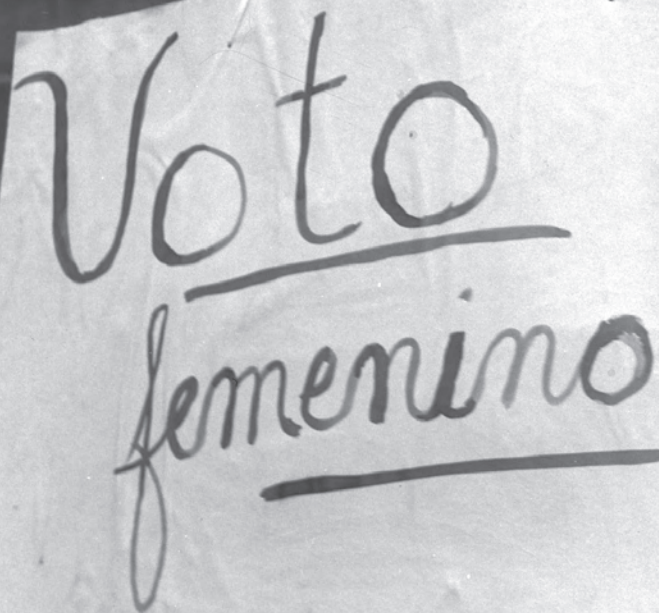 Voto
femenino